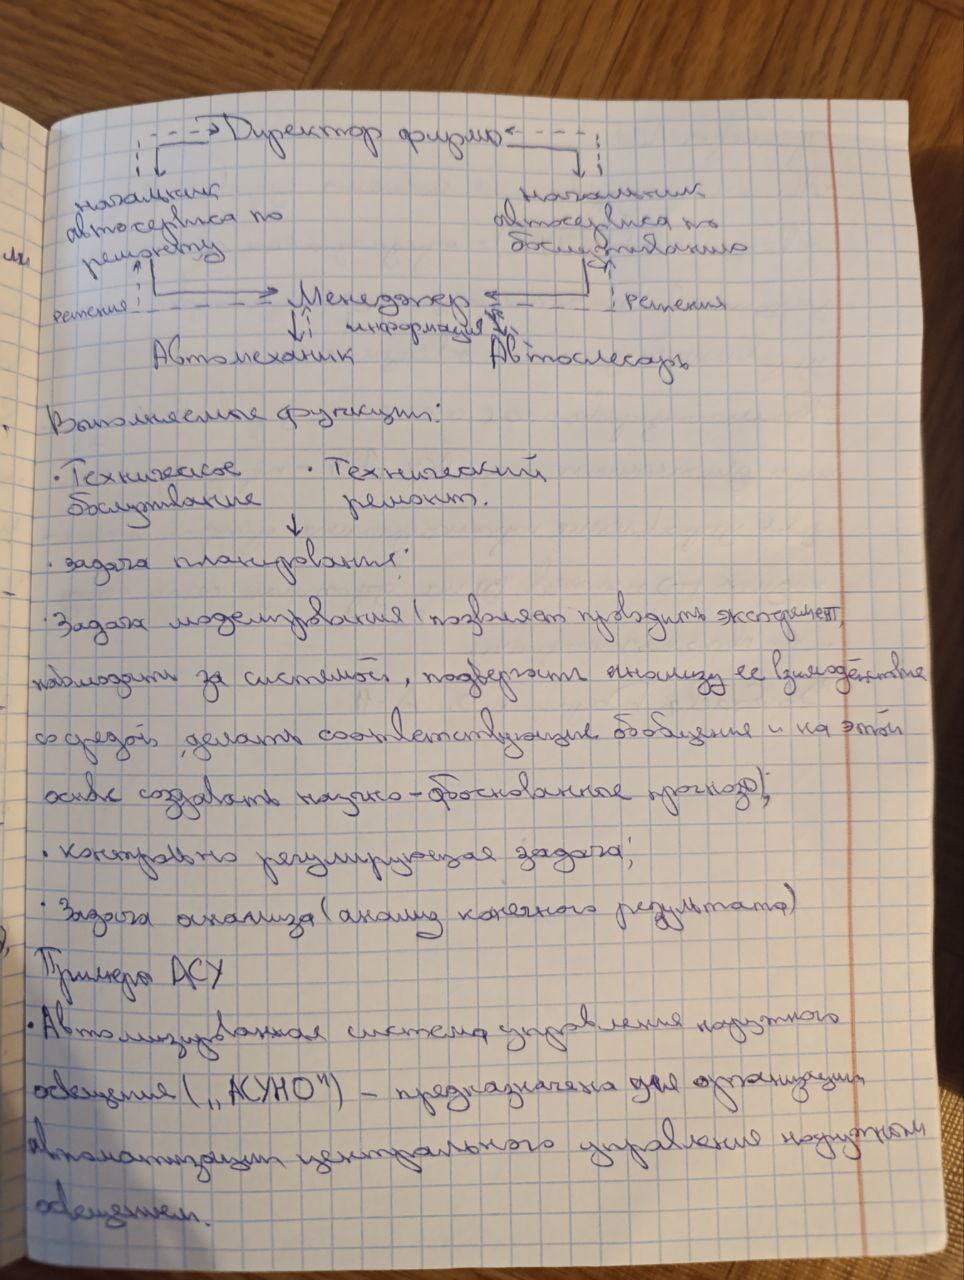 Директор фирмы
начальник
автосервиса по
ремонту
начальник
автосервиса по
обслуживанию
решения
Менеджер
решения
информация
Автомеханик
Автослесарь
Выполняемые функции:
· Техническое
обслуживание
· Технический
ремонт.
· задача планирования;
· Задача моделирования (позволяет проводить эксперимент,
наблюдать за системой, подвергать анализу ее взаимодействие
со средой, делать соответствующие обобщения и на этой
основе создавать научно-обоснованные прогнозы);
· контрольно регулирующая задача;
· Задача анализа (анализ конечного результата)
Примеры АСУ
· Автоматизированная система управления наружного
освещения („АСУНО") – предназначена для организации
автоматизации центрального управления наружным
освещением.